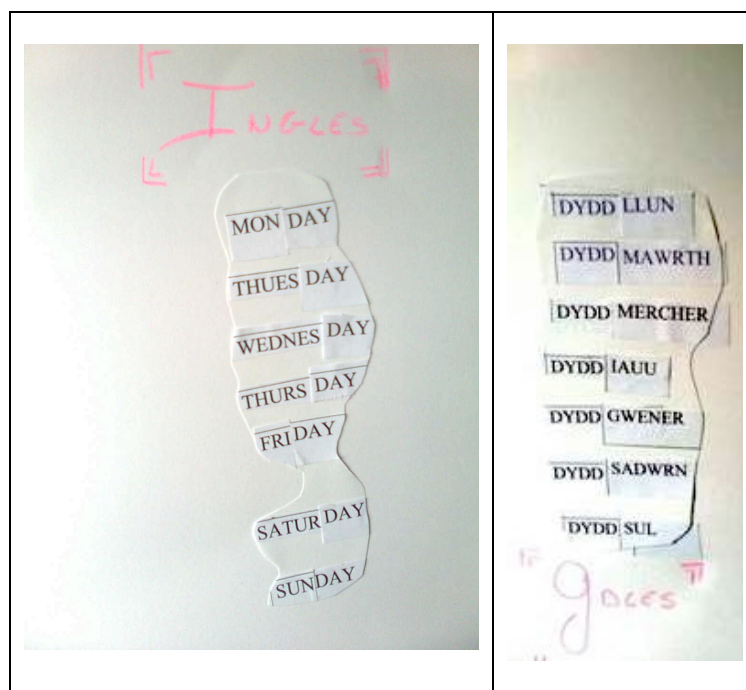 INGLES
MON DAY
THUES DAY
WEDNES DAY
THURS DAY
FRIDAY
SATUR DAY
SUNDAY
DYDD LLUN
DYDD MAWRTH
DYDD MERCHER
DYDD IAUU
DYDD GWENER
DYDD SADWRN
DYDD SUL